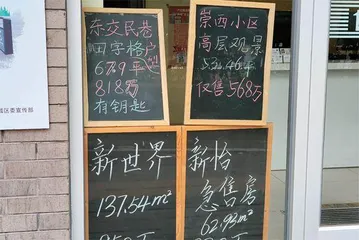 东交民巷
田字格户型
67.9平
818万
有钥匙
崇西小区
高层观景
仅售568万
新世界
137.54m²
新怡
急售房
62.93m²